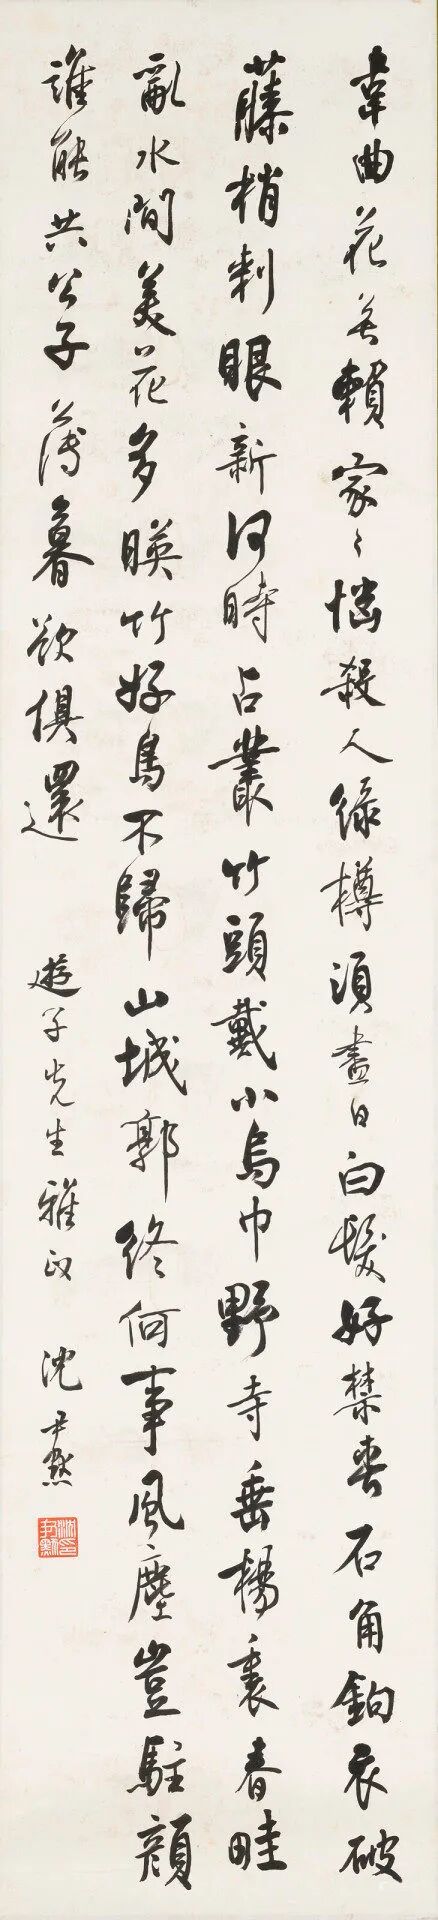 韋曲花無賴家〻惱殺人緑樽須盡日白髮好禁春石角鉤衣破
藤梢刺眼新何時占叢竹頭戴小烏巾野寺垂楊裏春畦
亂水間美花多暎竹好鳥不歸山城郭終何事風塵豈駐顔
誰能共公子薄暮欲俱還
遊子先生雅正 沈尹默
沈尹默印